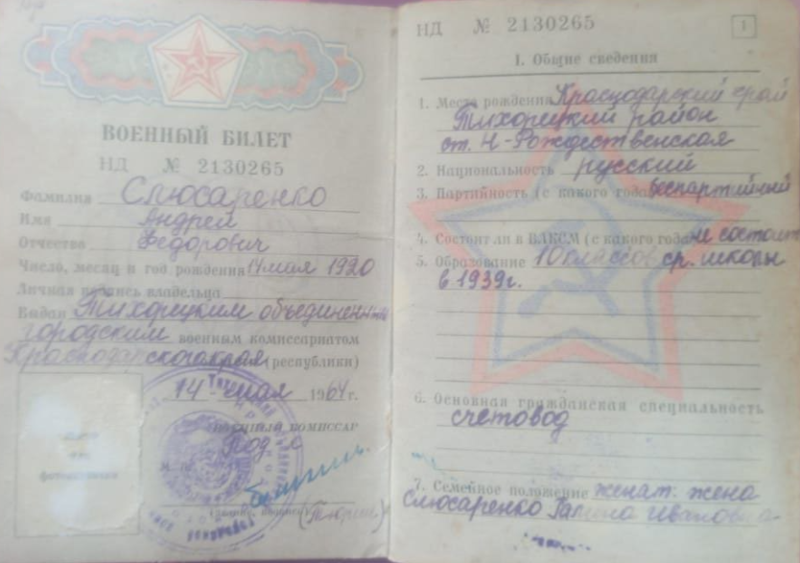 ВОЕННЫЙ БИЛЕТ
НД № 2130265
Фамилия Слюсаренко
Имя Андрей
Отчество Федорович
Число, месяц и год рождения 14 мая 1920
Личная подпись владельца
Выдан Тихорецким объединенным
городским военным комиссариатом
Краснодарского края (республики)
14 мая 1964 г.
ВОЕННЫЙ КОМИССАР
НД № 2130265
1
I. Общие сведения
1. Место рождения Краснодарский край
Тихорецкий район
ст. Н-Рождественская
2. Национальность русский
3. Партийность (с какого года) беспартийный
4. Состоит ли в ВЛКСМ (с какого года) не состоит
5. Образование 10 классов ср. школы
в 1939г.
6. Основная гражданская специальность
счетовод
7. Семейное положение женат: жена
Слюсаренко Галина Ивановна